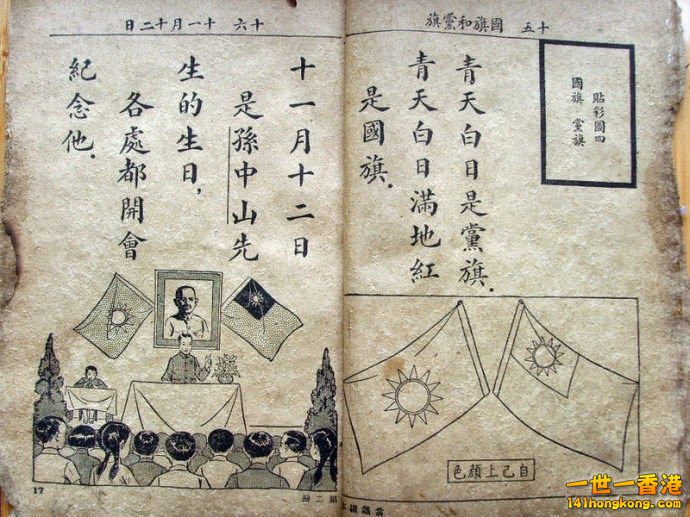 十五 國旗和黨旗
貼彩圖四
國旗 黨旗
青天白日是黨旗.
青天白日滿地紅
是國旗.
自己上顏色
十六 十一月十二日
十一月十二日
是孫中山先
生的生日,
各處都開會
紀念他.
17
第二冊
一世一香港
141hongkong.com